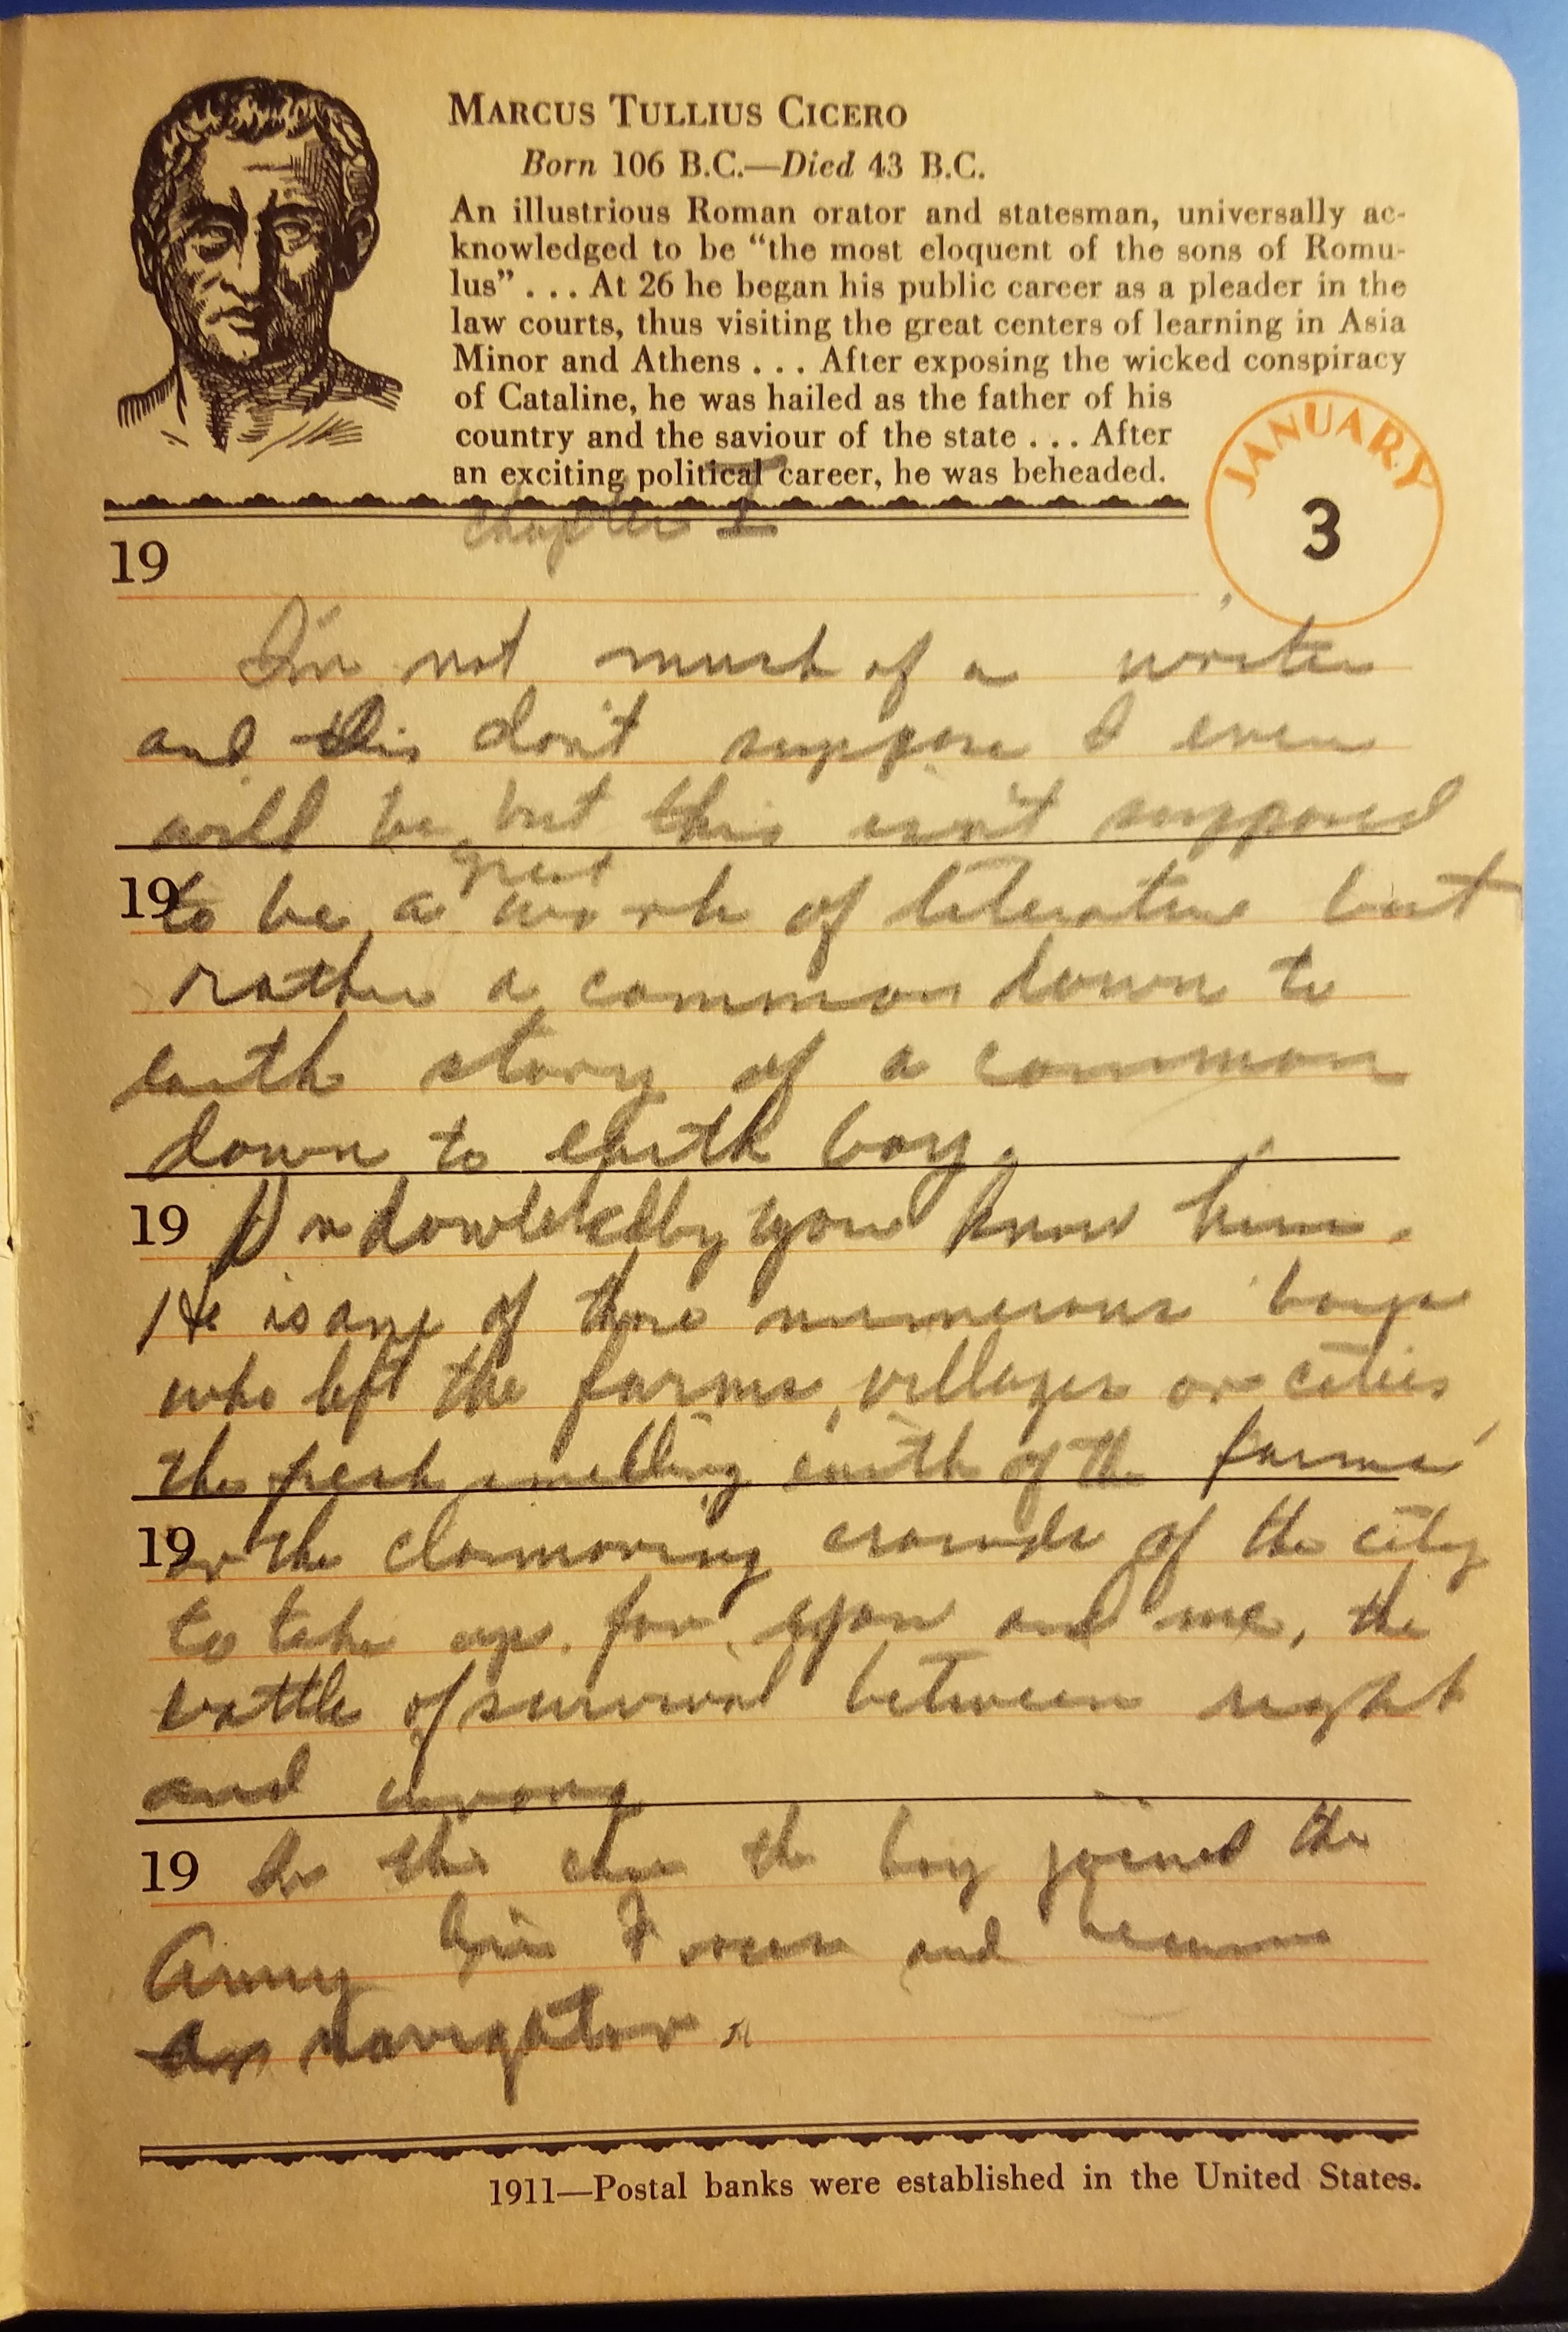 MARCUS TULLIUS CICERO
Born 106 B.C.—Died 43 B.C.
An illustrious Roman orator and statesman, universally ac-
knowledged to be “the most eloquent of the sons of Romu-
lus” . . . At 26 he began his public career as a pleader in the
law courts, thus visiting the great centers of learning in Asia
Minor and Athens . . . After exposing the wicked conspiracy
of Cataline, he was hailed as the father of his
country and the saviour of the state . . . After
an exciting political career, he was beheaded.
JANUARY
3
Chapter I
19
I'm not much of a writer
and this don't suppose I ever
will be, but this isn't supposed
great
19
to be a work of literature but
rather a common down to
earth story of a common
down to earth boy.
19
you know him.
He is one of those numerous boys
who left the farms, villages or cities
the fresh smelling earth of the farms
19
or the clamoring crowds of the city
to take up for you and me, the
battle of survival between right
and wrong
19
the boy joined the
Army Air Forces and became
navigator.
1911—Postal banks were established in the United States.